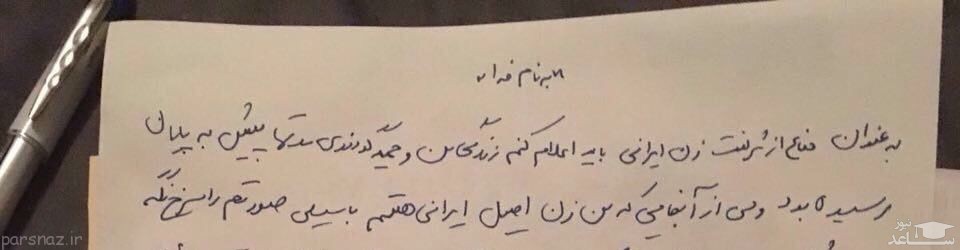 "به نام خدا"
به عنوان دفاع از شرافت زن ایرانی باید اعلام کنم زندگی من و حمید گودرزی مدتها پیش به پایان
رسیده بود ولی از آنجایی که من زن اصیل ایرانی هستم با سیلی صورتم را سرخ نگه
parsnaz.ir
ساعد نیوز